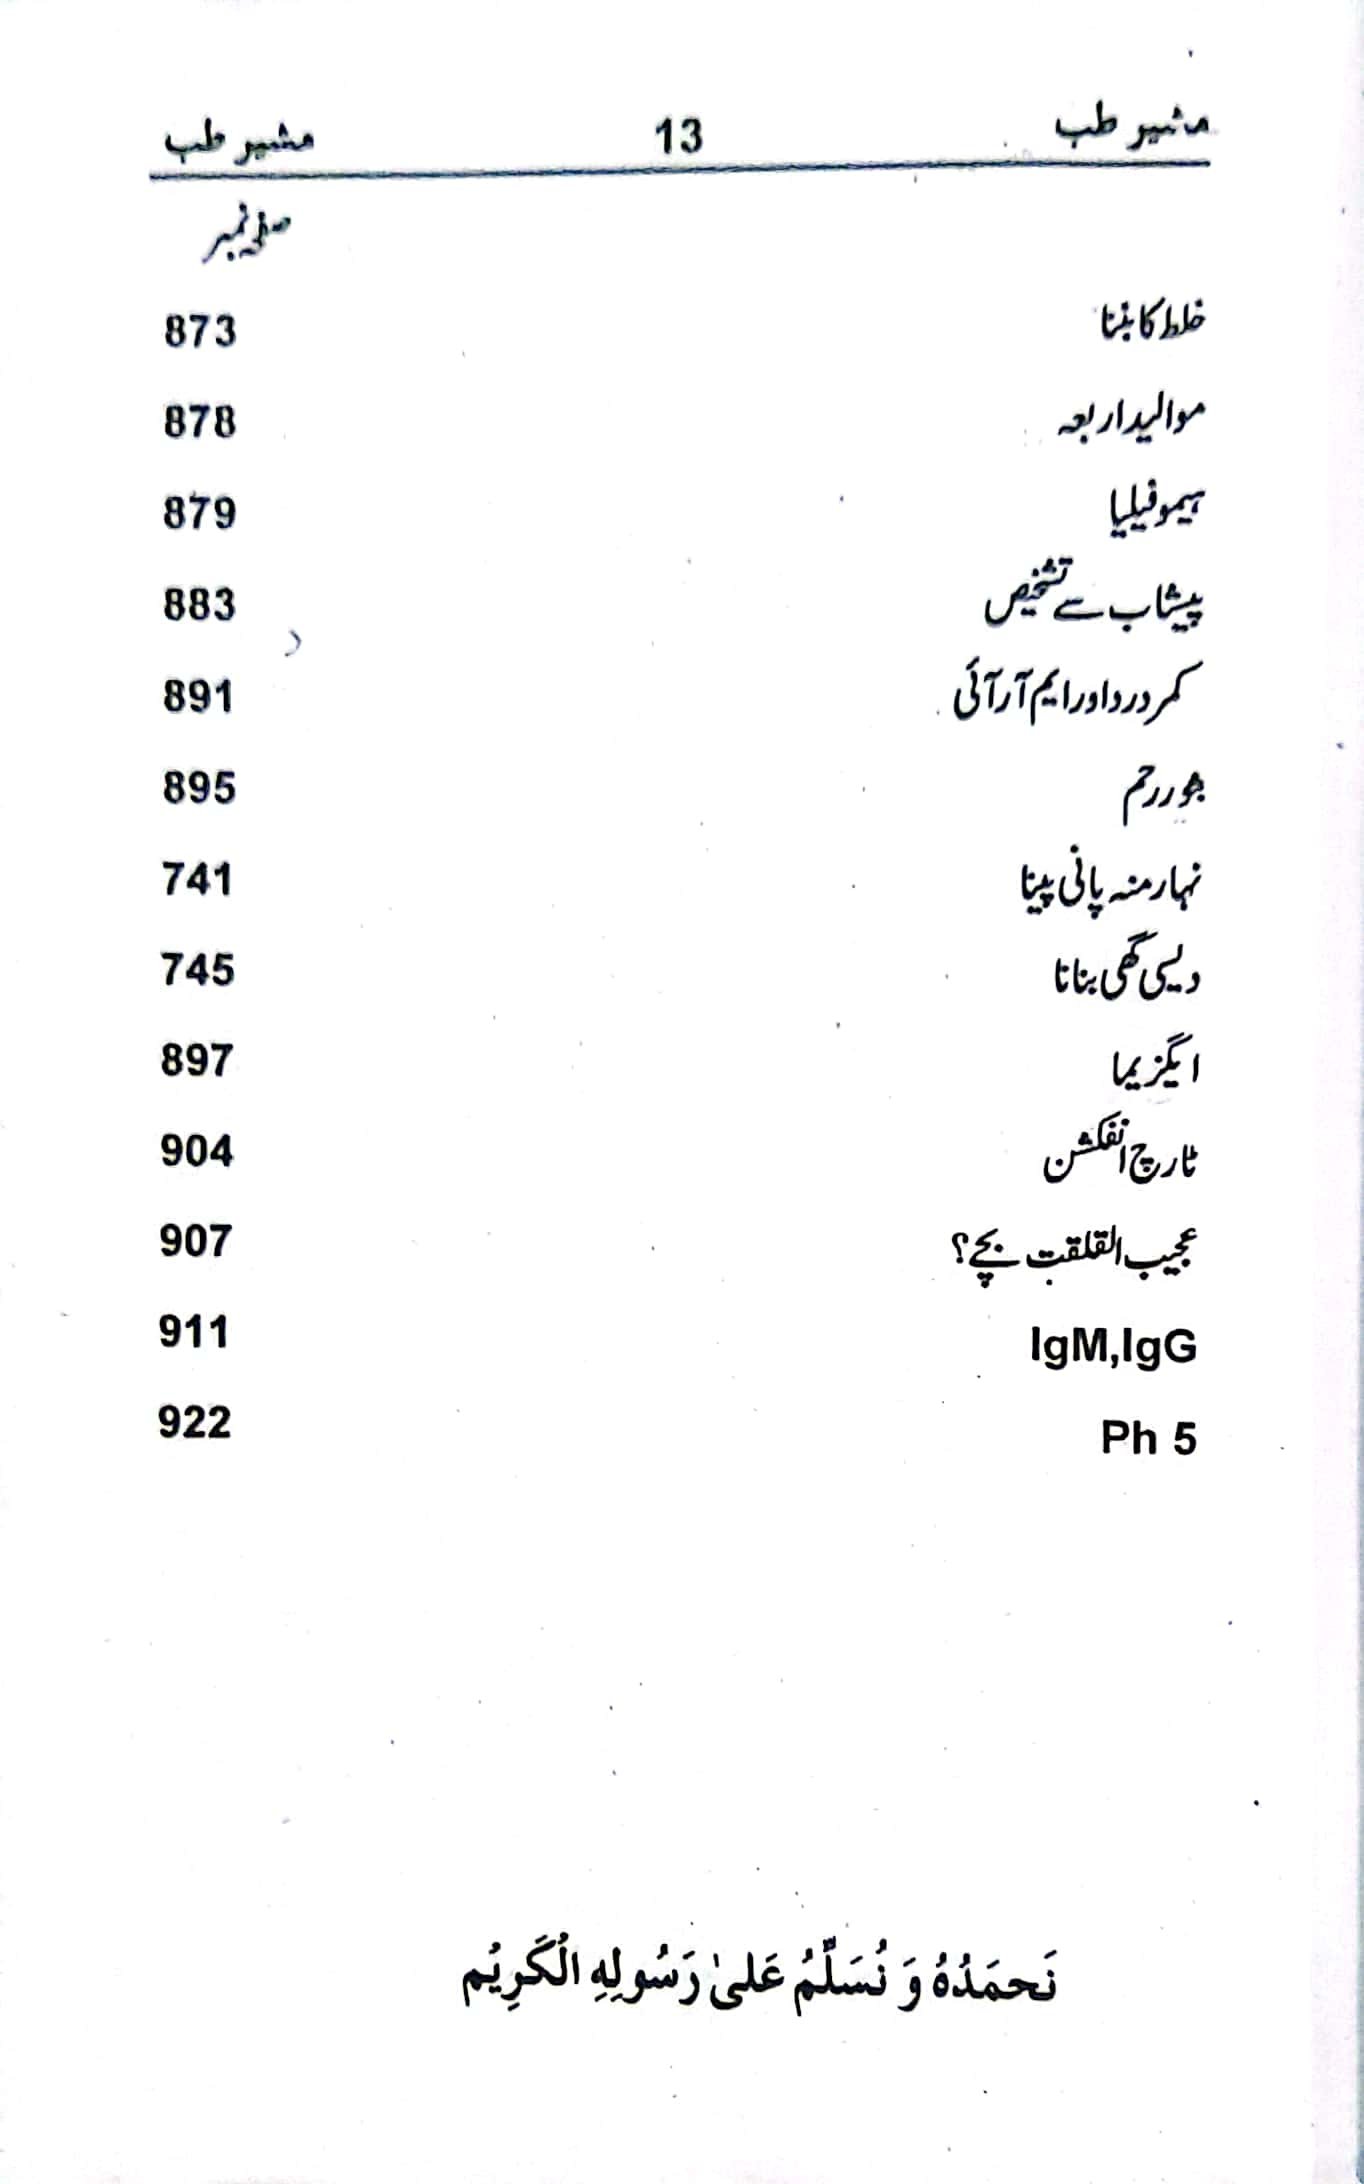 مشیر طب 13 مشیر طب
صفحہ نمبر
خلط کا بننا 873
موالید اربعہ 878
ہیموفیلیا 879
پیشاب سے تشخیص 883
کمر درد اور ایم آر آئی 891
رحم 895
نہار منہ پانی پینا 741
دیسی گھی بنانا 745
ایگزیما 897
ٹارچ انفکشن 904
عجیب القلقت بچے؟ 907
IgM,IgG 911
Ph 5 922
نَحمَدُهُ وَ نُسَلِّمُ عَلىٰ رَسُولِهِ الْكَرِيْم